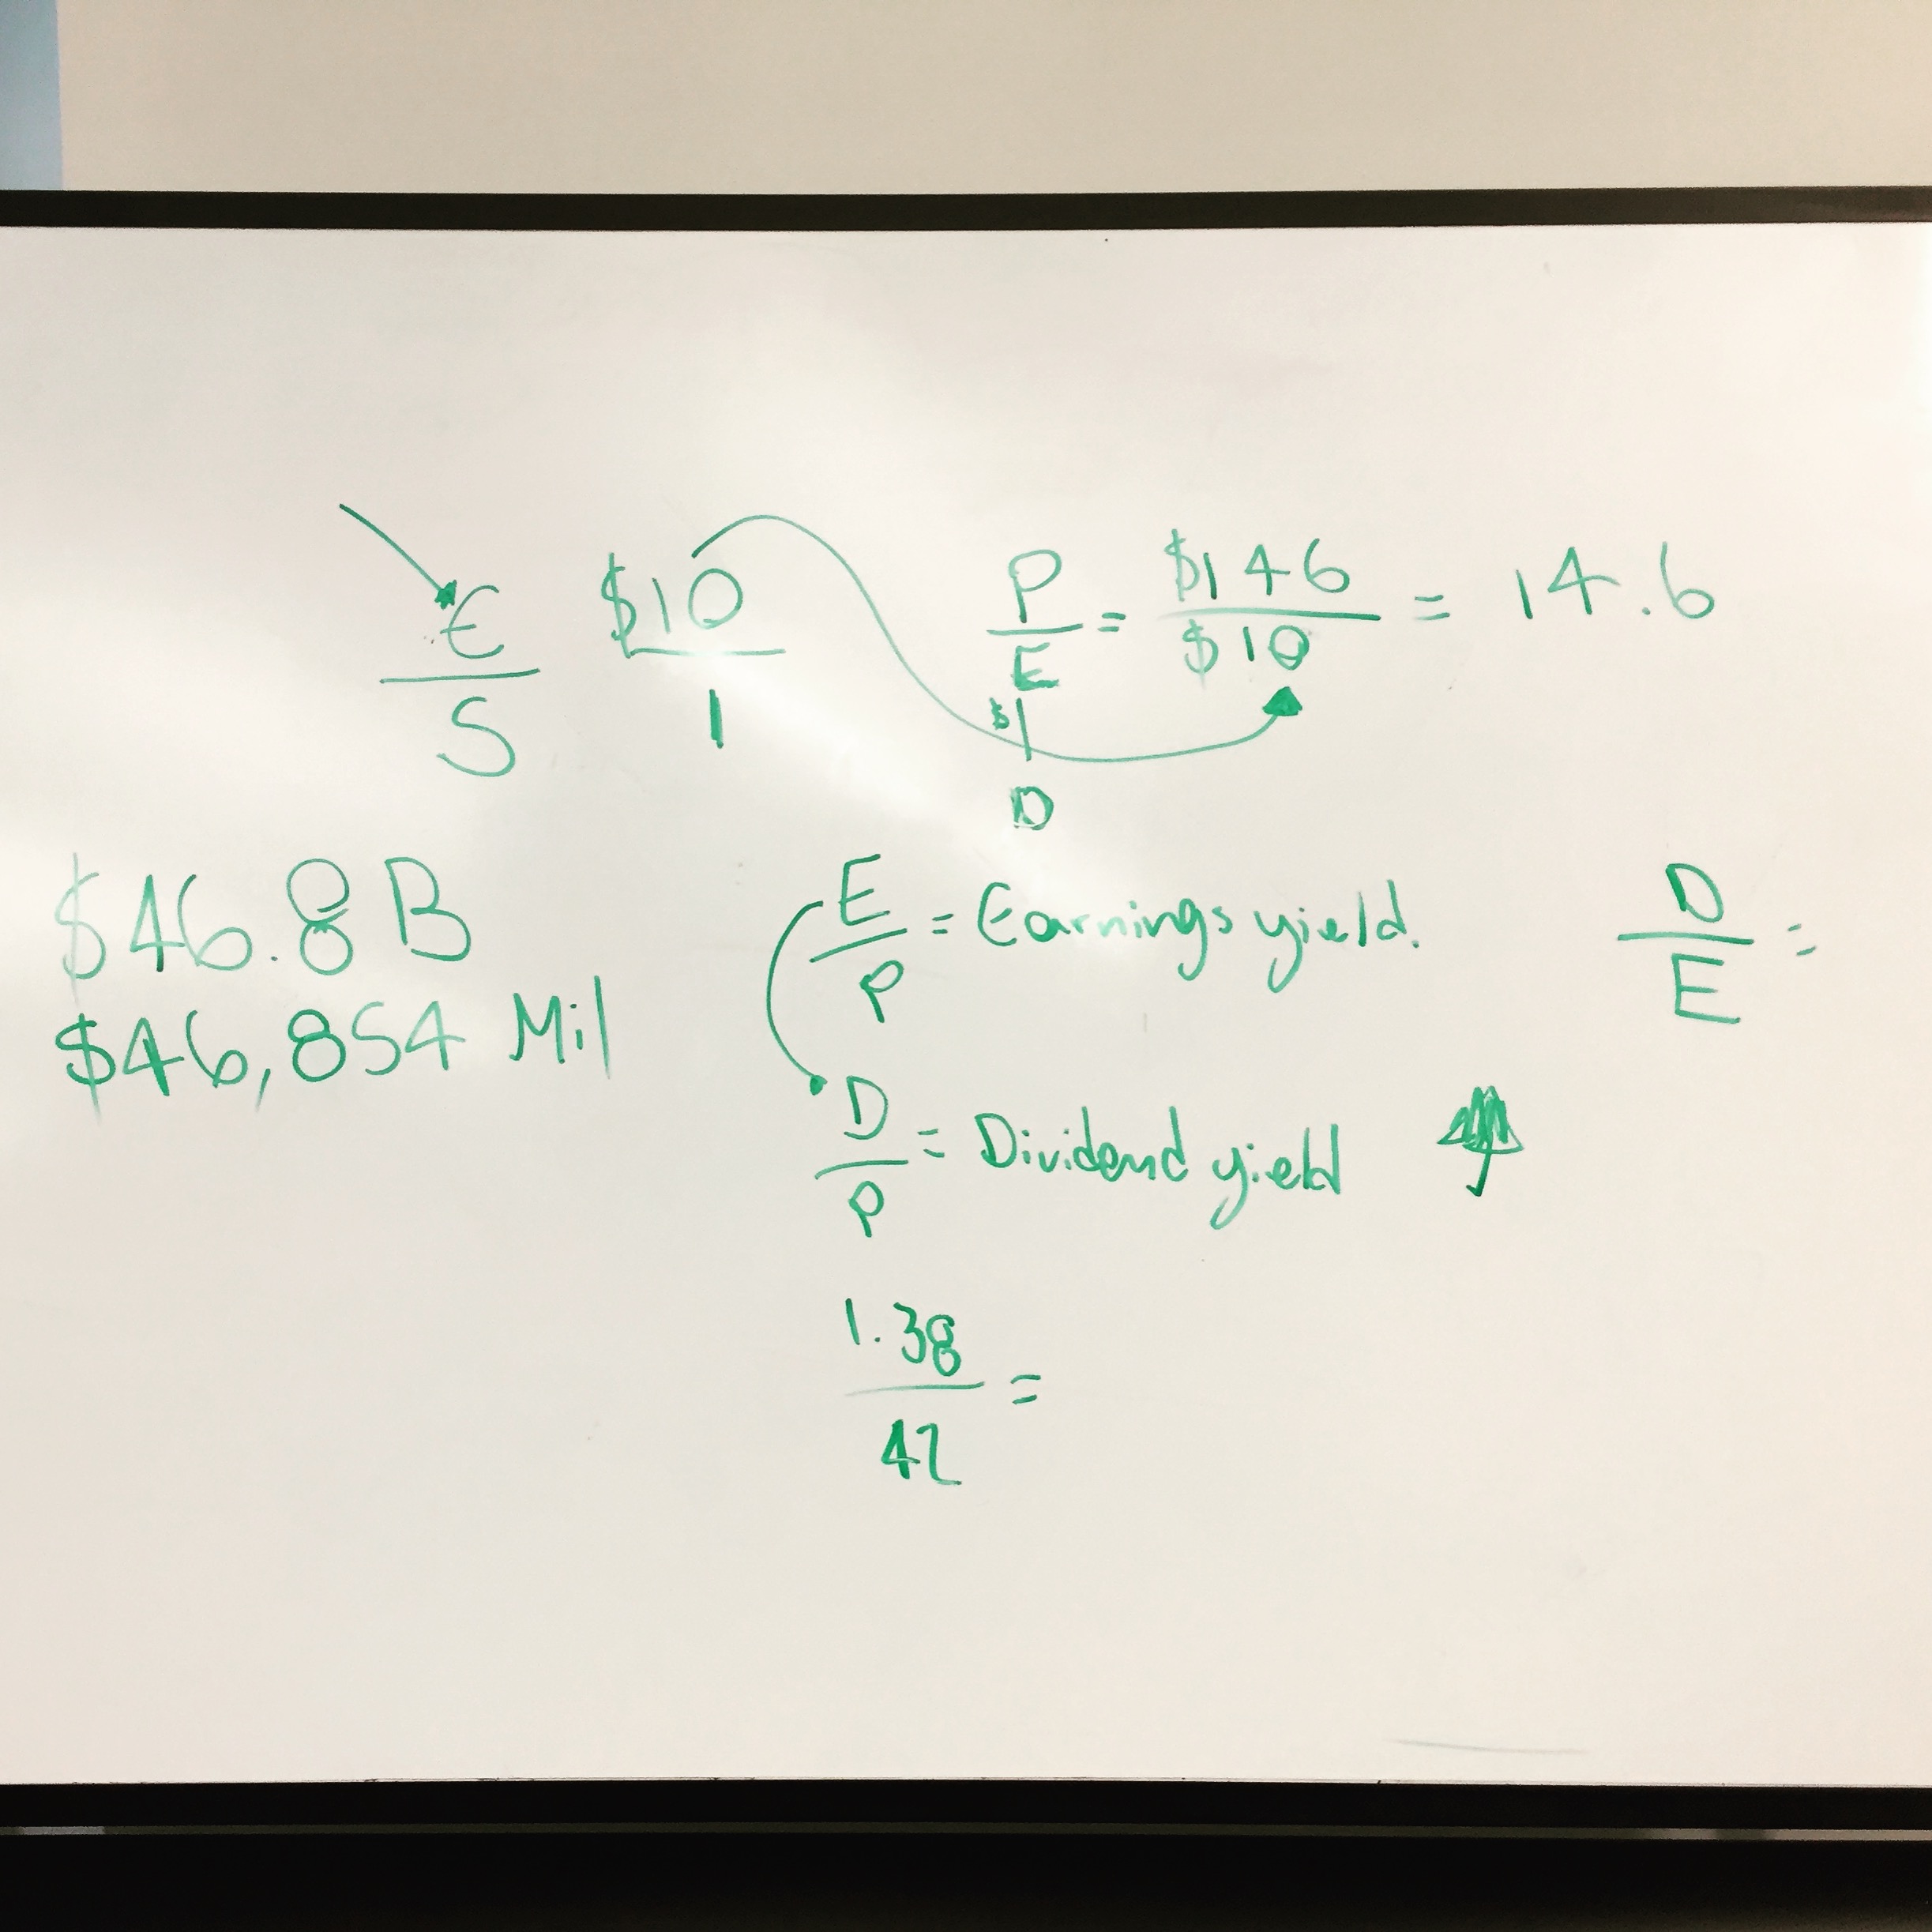 E $10 P $146
— — — = — = 14.6
S 1 E $10
$1
D
$46.8B
$46,854 Mil
E
— = Earnings yield.
P
D
— =
E
D
— = Dividend yield
P
1.38
— =
42